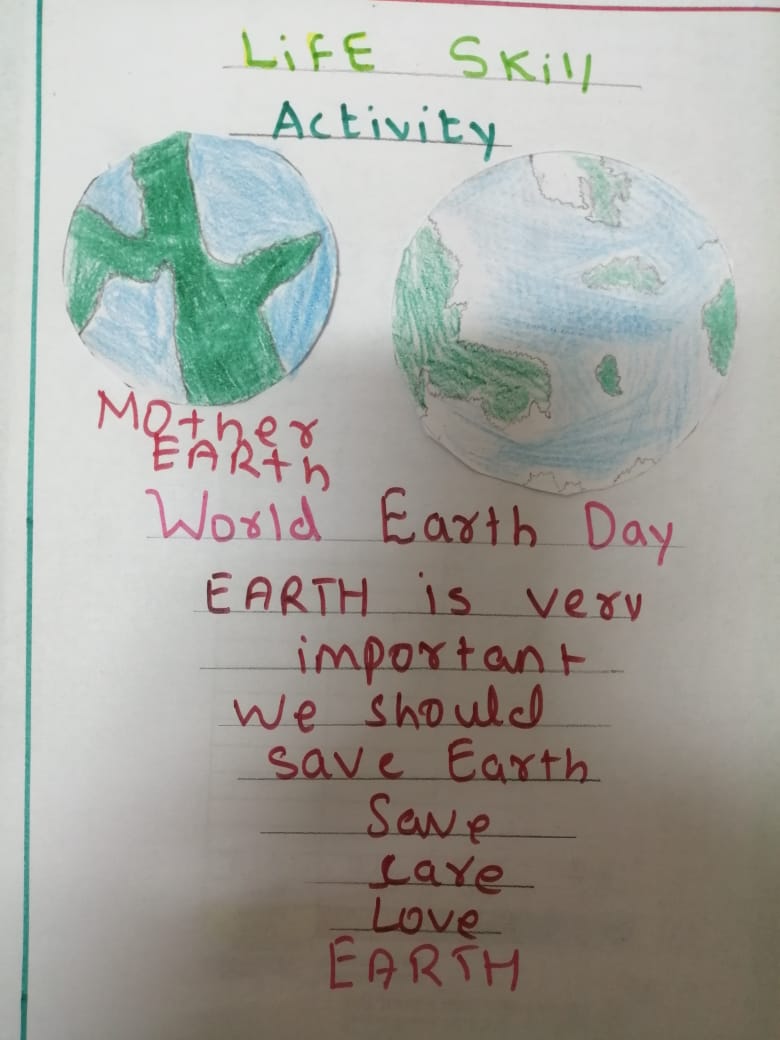 LiFE Skill
Activity
MOther
EARth
World Earth Day
EARTH is very
important
We should
save Earth
Save
care
Love
EARTH